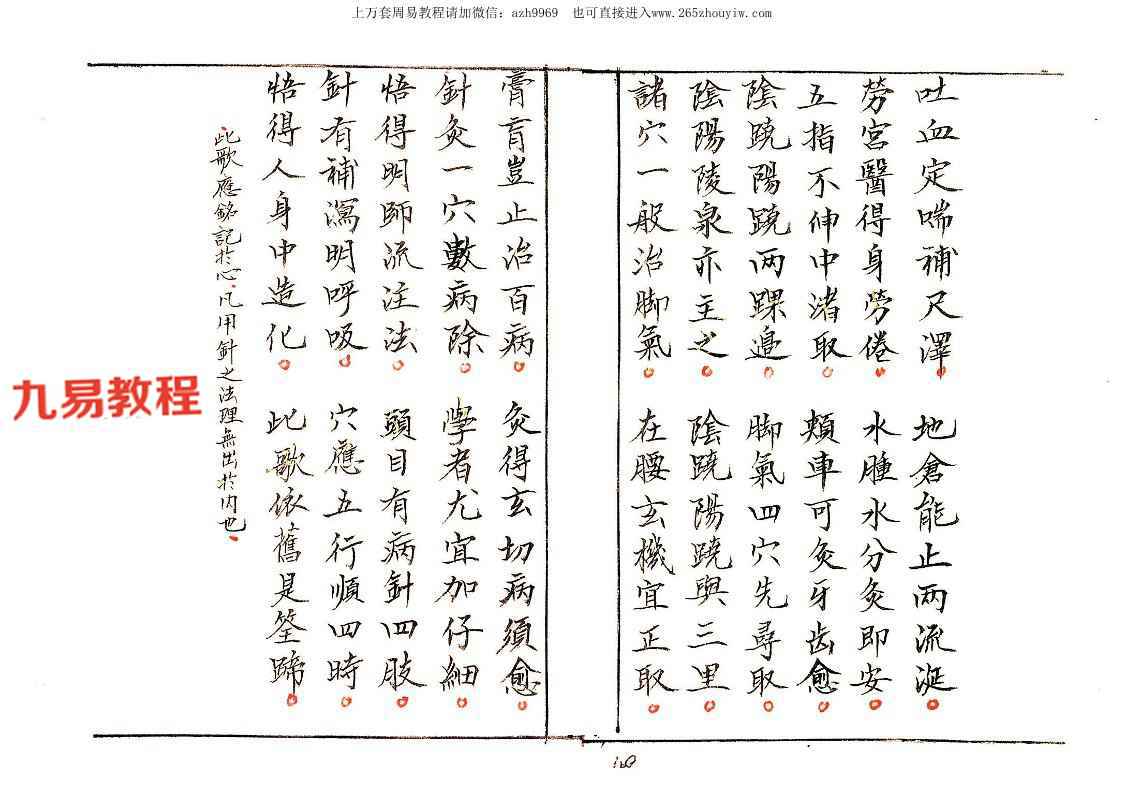 上万套周易教程请加微信：azh9969　也可直接进入www.265zhouyiw.com
吐血定喘補尺澤　地倉能止两流涎
劳宮醫得身劳倦　水腫水分灸即安
五指不伸中渚取　頰車可灸牙齿愈
陰蹺陽蹺两踝邉　脚氣四穴先尋取
陰陽陵泉亦主之　陰蹺陽蹺與三里
諸穴一般治脚氣　在腰玄機宜正取
膏肓豈止治百病　灸得玄切病須愈
針灸一穴數病除　學者尤宜加仔細
悟得明師流注法　頭目有病針四肢
針有補瀉明呼吸　穴應五行順四時
悟得人身中造化　此歌依舊是筌蹄
此歌應銘記於心、凡用針之法理無出於内也、
九易教程